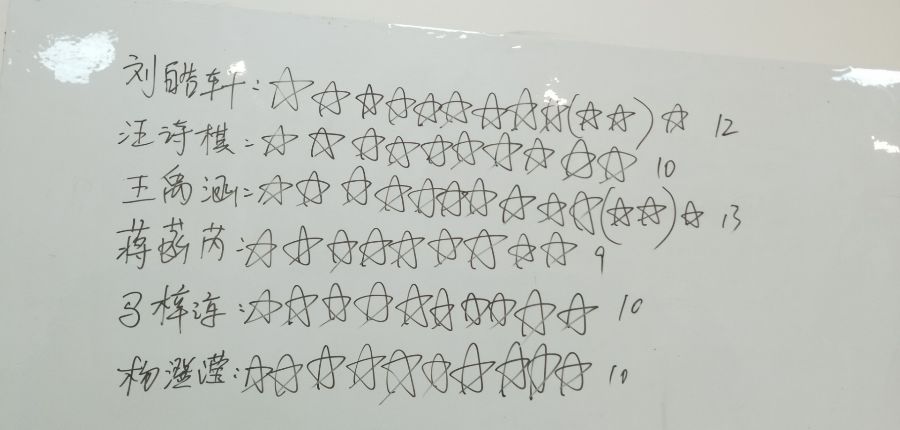 刘皓轩:☆☆☆☆☆☆☆☆☆(☆☆)☆ 12
汪诗棋:☆☆☆☆☆☆☆☆☆☆ 10
王禹涵:☆☆☆☆☆☆☆☆☆☆(☆☆)☆ 13
蒋菡芮:☆☆☆☆☆☆☆☆☆ 9
马梓淳:☆☆☆☆☆☆☆☆☆☆ 10
杨滢:☆☆☆☆☆☆☆☆☆☆ 10